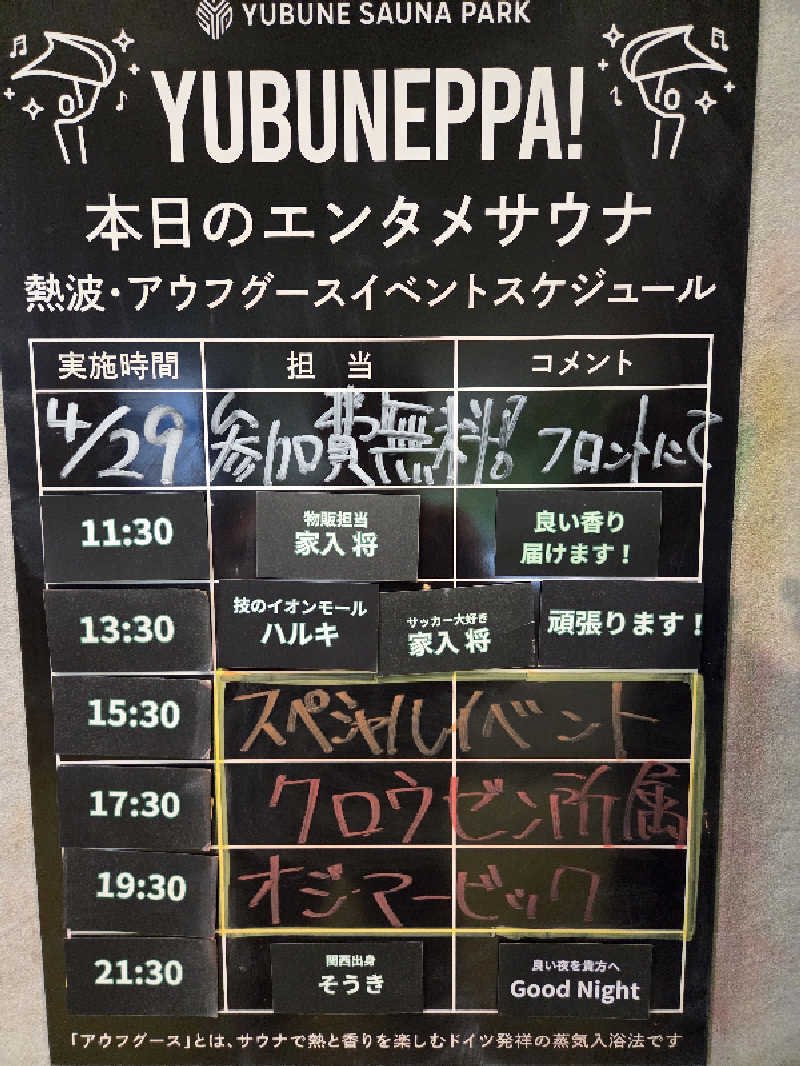 YUBUNE SAUNA PARK
YUBUNEPPA!
本日のエンタメサウナ
熱波・アウフグースイベントスケジュール
実施時間 担当 コメント
4/29 参加費無料! フロントにて
11:30 物販担当 家入 将 良い香り 届けます！
13:30 技のイオンモール ハルキ サッカー大好き 家入 将 頑張ります！
15:30 スペシャルイベント
17:30 クロウゼン所属
19:30 オジマービック
21:30 関西出身 そうき 良い夜を貴方へ Good Night
「アウフグース」とは、サウナで熱と香りを楽しむドイツ発祥の蒸気入浴法です